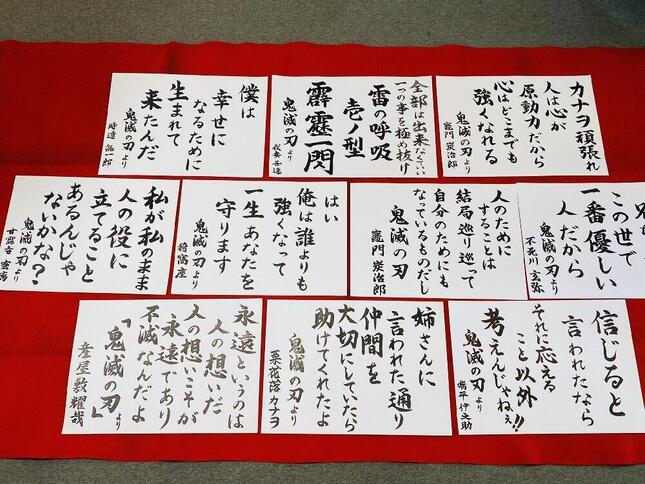 カナヲ頑張れ
人は心が
原動力だから
心はどこまでも
強くなれる
鬼滅の刃より
竈門 炭治郎
全部は出来なくていい
一つの事を極め抜け
雷の呼吸
壱ノ型
霹靂一閃
鬼滅の刃より
我妻善逸
僕は
幸せに
なるために
生まれて
来たんだ
鬼滅の刃より
時透 無一郎
この世で
一番優しい
人だから
鬼滅の刃より
不死川 玄弥
人のために
することは
結局巡り巡って
自分のためにも
なっているものだし
鬼滅の刃
竈門 炭治郎
はい
俺は誰よりも
強くなって
一生あなたを
守ります
鬼滅の刃より
猗窩座
私が私のまま
人の役に
立てること
あるんじゃ
ないかな？
鬼滅の刃より
甘露寺 蜜璃
信じると
言われたなら
それに応える
こと以外!!
考えんじゃねぇ
鬼滅の刃より
嘴平 伊之助
姉さんに
言われた通り
仲間を
大切にしていたら
助けてくれたよ
鬼滅の刃より
栗花落 カナヲ
永遠というのは
人の想いだ
人の想いこそが
永遠であり
不滅なんだよ
「鬼滅の刃」より
産屋敷耀哉